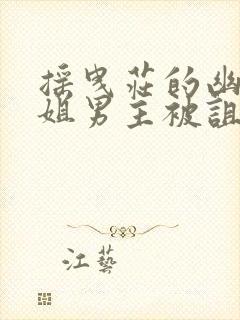 採曳莊的幽
姐男主被詛
江藝